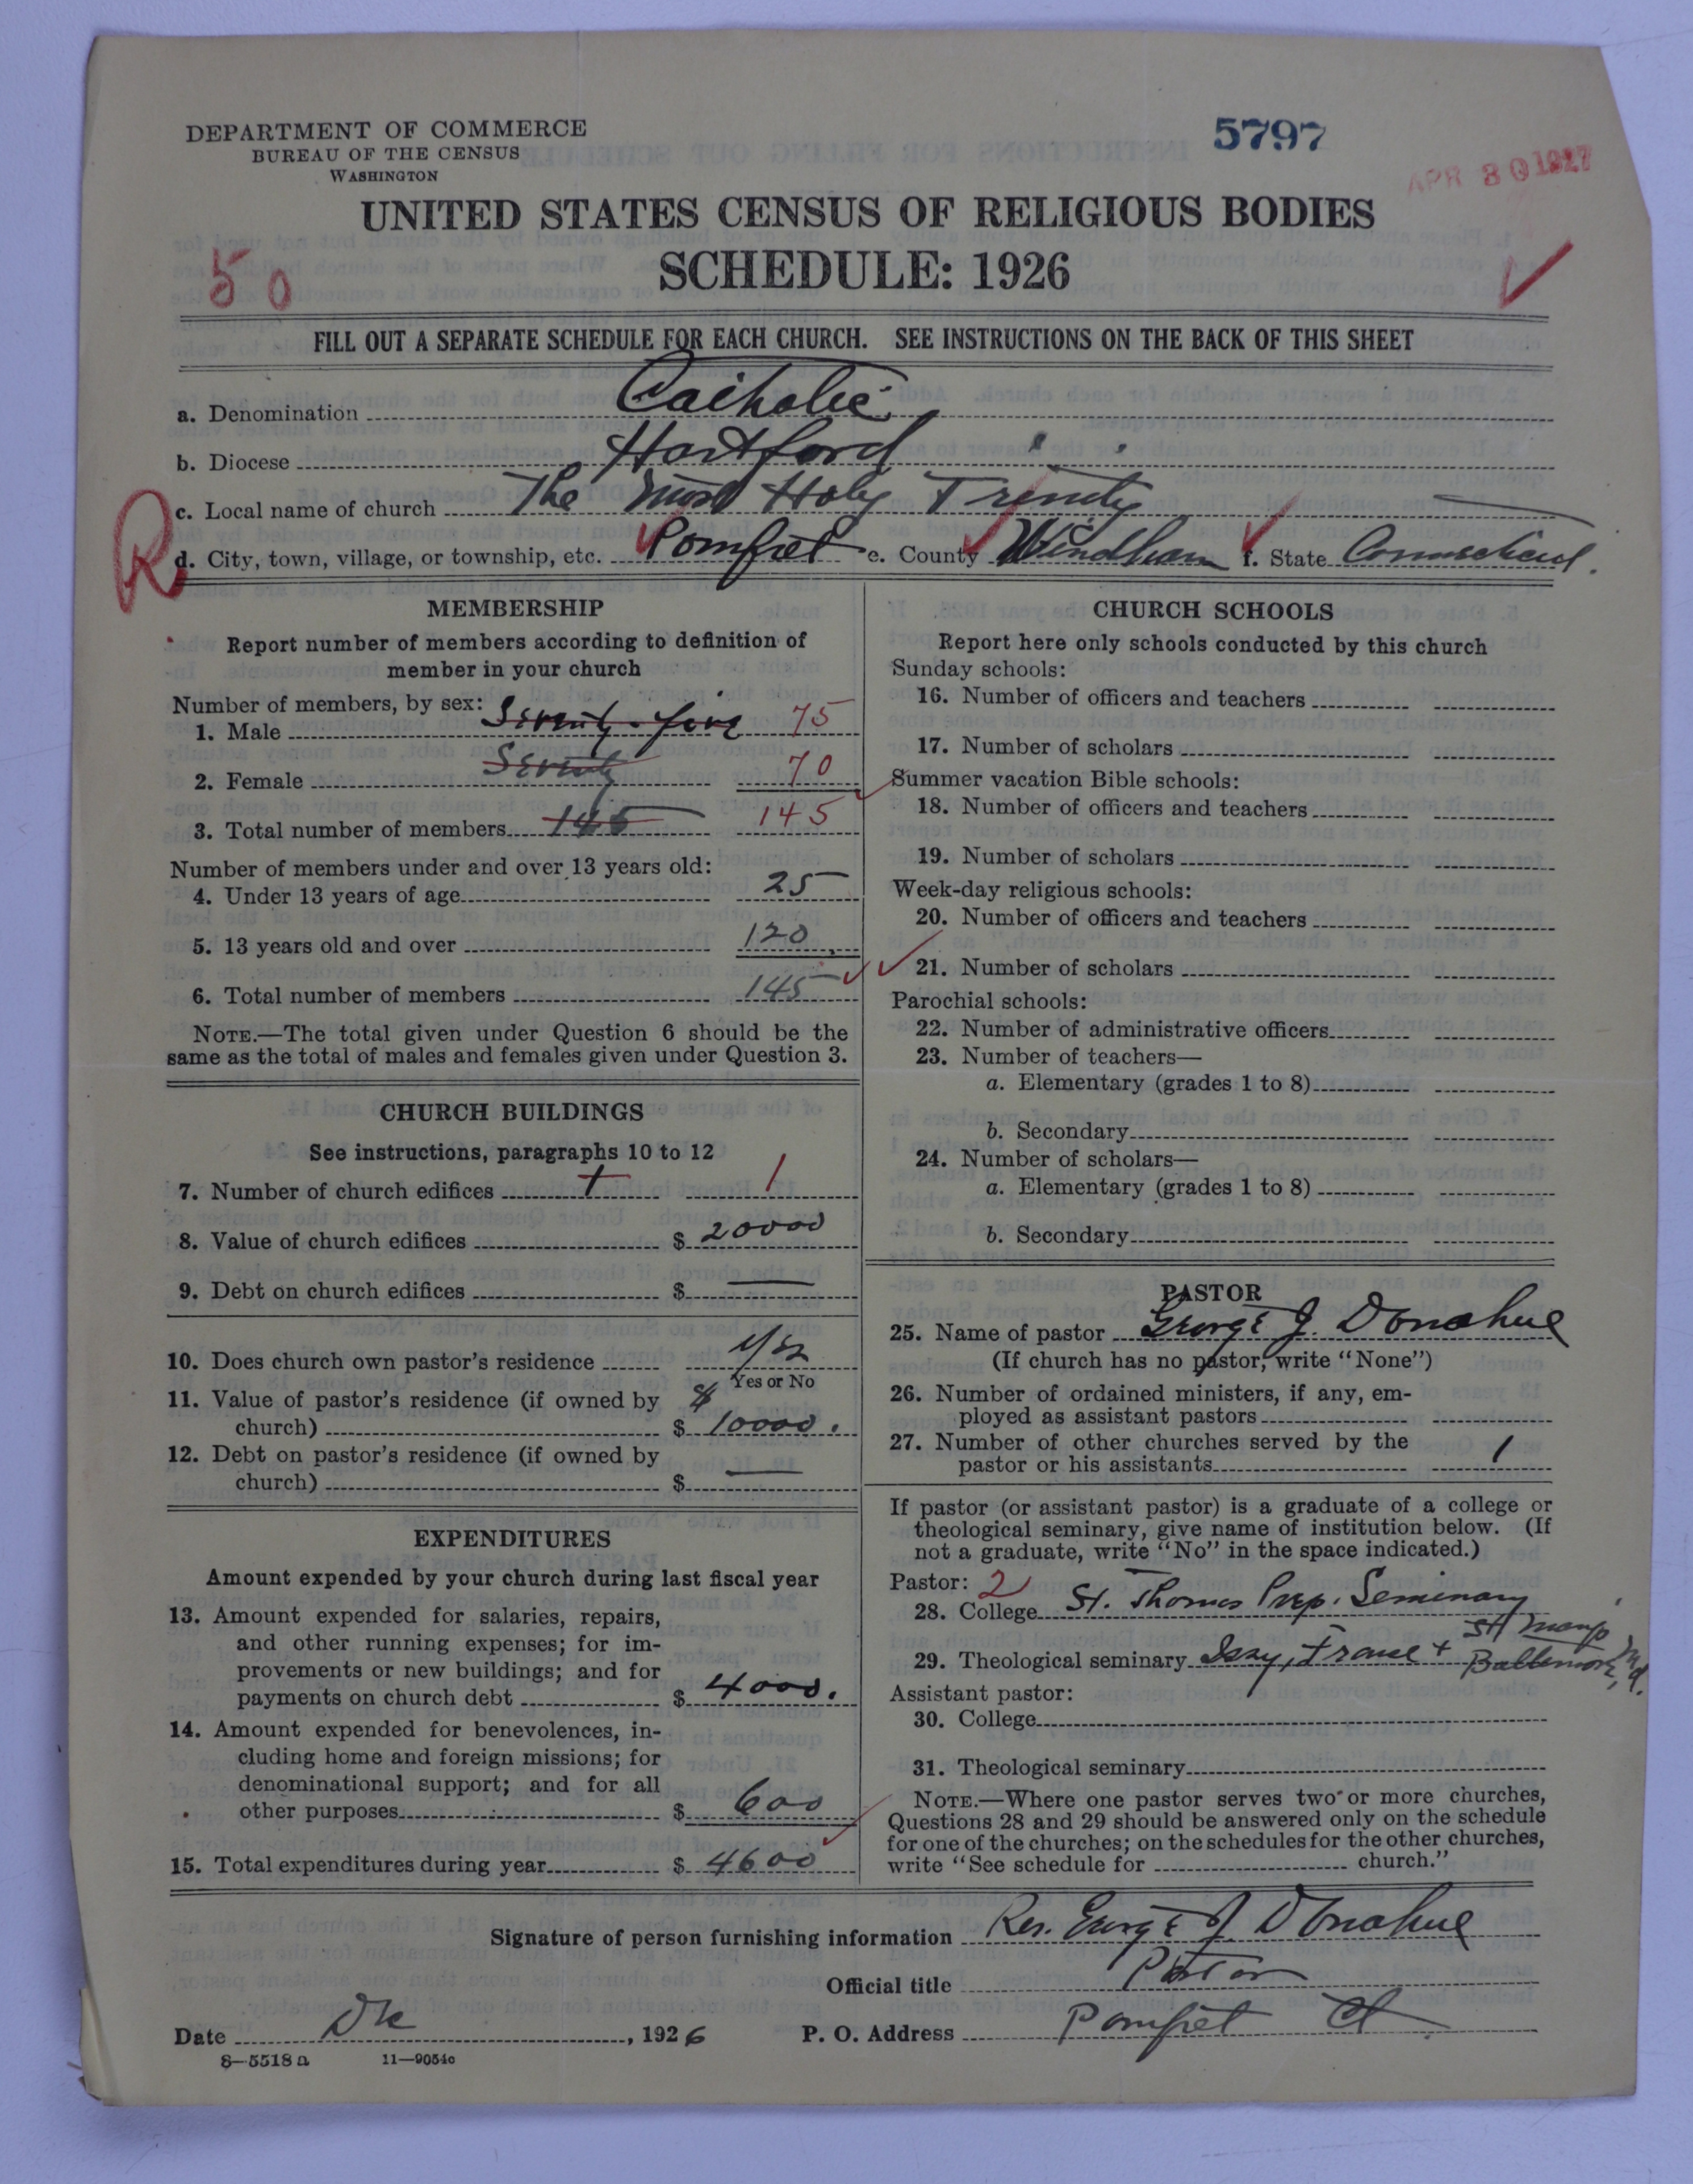 DEPARTMENT OF COMMERCE
BUREAU OF THE CENSUS
WASHINGTON
5797
APR 30 1927
UNITED STATES CENSUS OF RELIGIOUS BODIES
SCHEDULE: 1926
50
FILL OUT A SEPARATE SCHEDULE FOR EACH CHURCH. SEE INSTRUCTIONS ON THE BACK OF THIS SHEET
a. Denomination Catholic
b. Diocese Hartford
c. Local name of church The Most Holy Trinity
R
d. City, town, village, or township, etc. Pomfret e. County Windham f. State Connecticut.
MEMBERSHIP
Report number of members according to definition of
member in your church
Number of members, by sex:
1. Male Seventy-five 75
2. Female Seventy 70
3. Total number of members 145 145
Number of members under and over 13 years old:
4. Under 13 years of age 25
5. 13 years old and over 120
6. Total number of members 145
NOTE.—The total given under Question 6 should be the
same as the total of males and females given under Question 3.
CHURCH BUILDINGS
See instructions, paragraphs 10 to 12
7. Number of church edifices 1 1
8. Value of church edifices $ 20000
9. Debt on church edifices $ —
10. Does church own pastor's residence Yes
Yes or No
11. Value of pastor's residence (if owned by
church) $ 10000.
12. Debt on pastor's residence (if owned by
church) $ —
EXPENDITURES
Amount expended by your church during last fiscal year
13. Amount expended for salaries, repairs,
and other running expenses; for im-
provements or new buildings; and for
payments on church debt $ 4000.
14. Amount expended for benevolences, in-
cluding home and foreign missions; for
denominational support; and for all
other purposes $ 600
15. Total expenditures during year $ 4600
CHURCH SCHOOLS
Report here only schools conducted by this church
Sunday schools:
16. Number of officers and teachers
17. Number of scholars
Summer vacation Bible schools:
18. Number of officers and teachers
19. Number of scholars
Week-day religious schools:
20. Number of officers and teachers
21. Number of scholars
Parochial schools:
22. Number of administrative officers
23. Number of teachers—
a. Elementary (grades 1 to 8)
b. Secondary
24. Number of scholars—
a. Elementary (grades 1 to 8)
b. Secondary
PASTOR
25. Name of pastor George J. Donahue
(If church has no pastor, write "None")
26. Number of ordained ministers, if any, em-
ployed as assistant pastors
27. Number of other churches served by the
pastor or his assistants 1
If pastor (or assistant pastor) is a graduate of a college or
theological seminary, give name of institution below. (If
not a graduate, write "No" in the space indicated.)
Pastor: 2
28. College St. Thomas Prep. Seminary
29. Theological seminary Issy, France + St Mary's
Baltimore, Md.
Assistant pastor:
30. College
31. Theological seminary
NOTE.—Where one pastor serves two or more churches,
Questions 28 and 29 should be answered only on the schedule
for one of the churches; on the schedules for the other churches,
write "See schedule for church."
Signature of person furnishing information Rev. George J. Donahue
Official title Pastor
Date Dec, 1926 P. O. Address Pomfret Ct.
8—5518 a 11—9054c